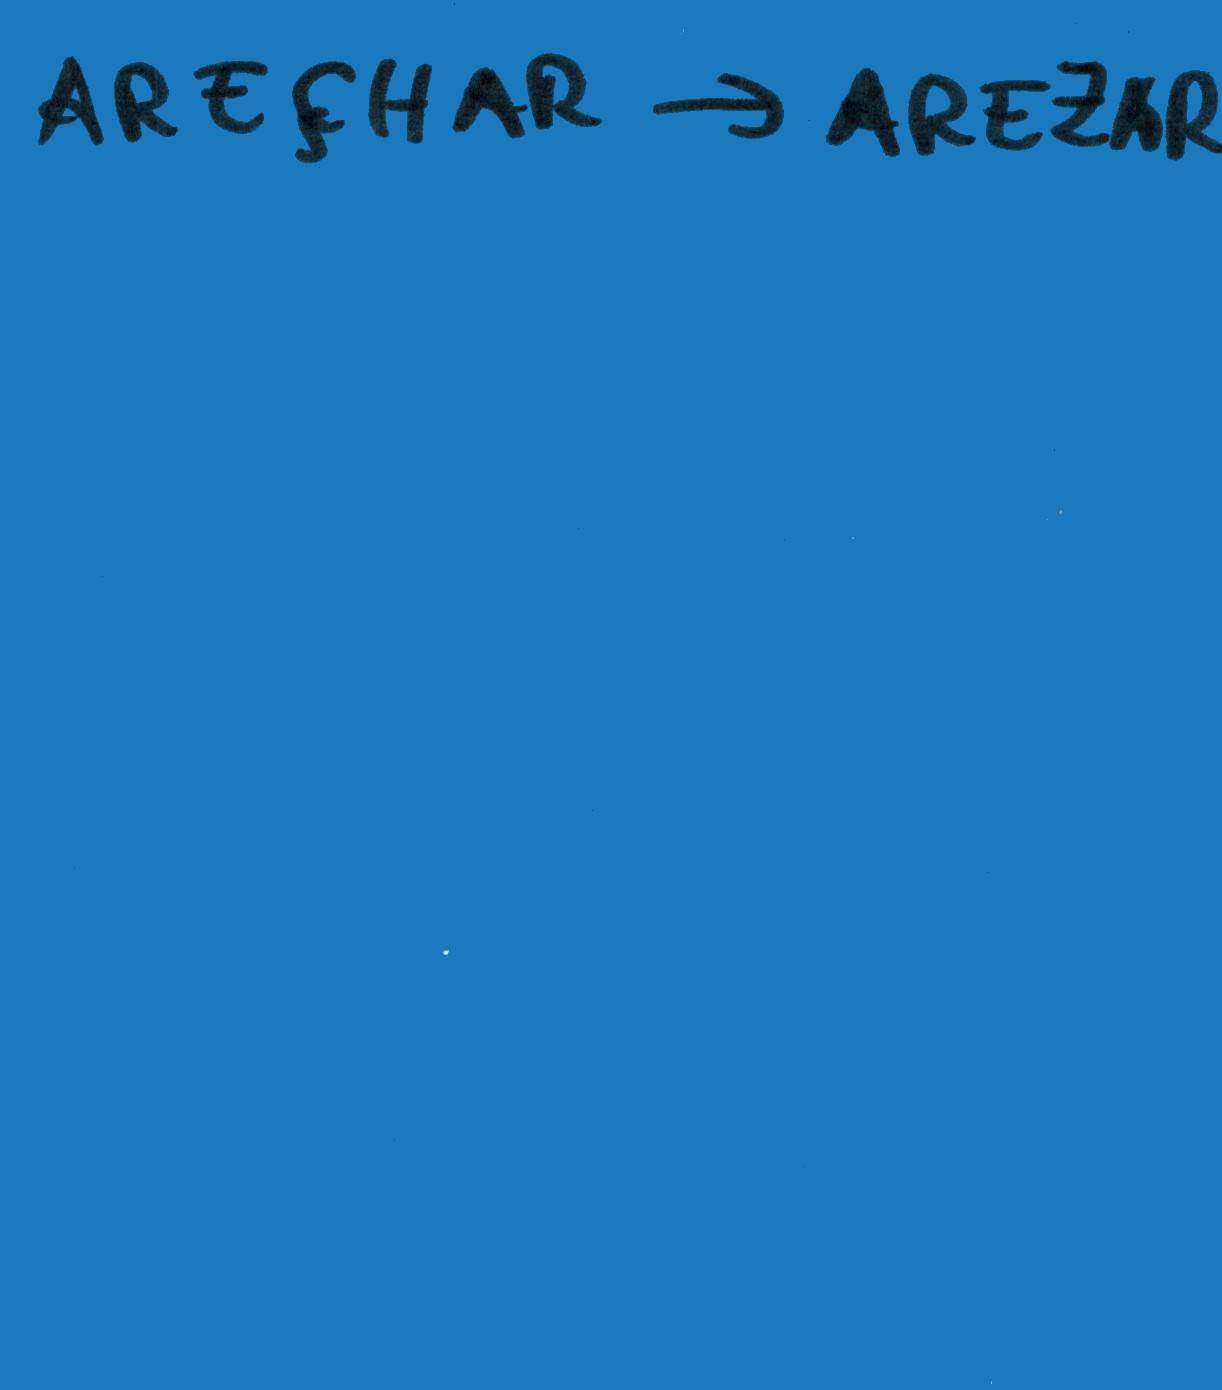 AREÇHAR → AREZAR